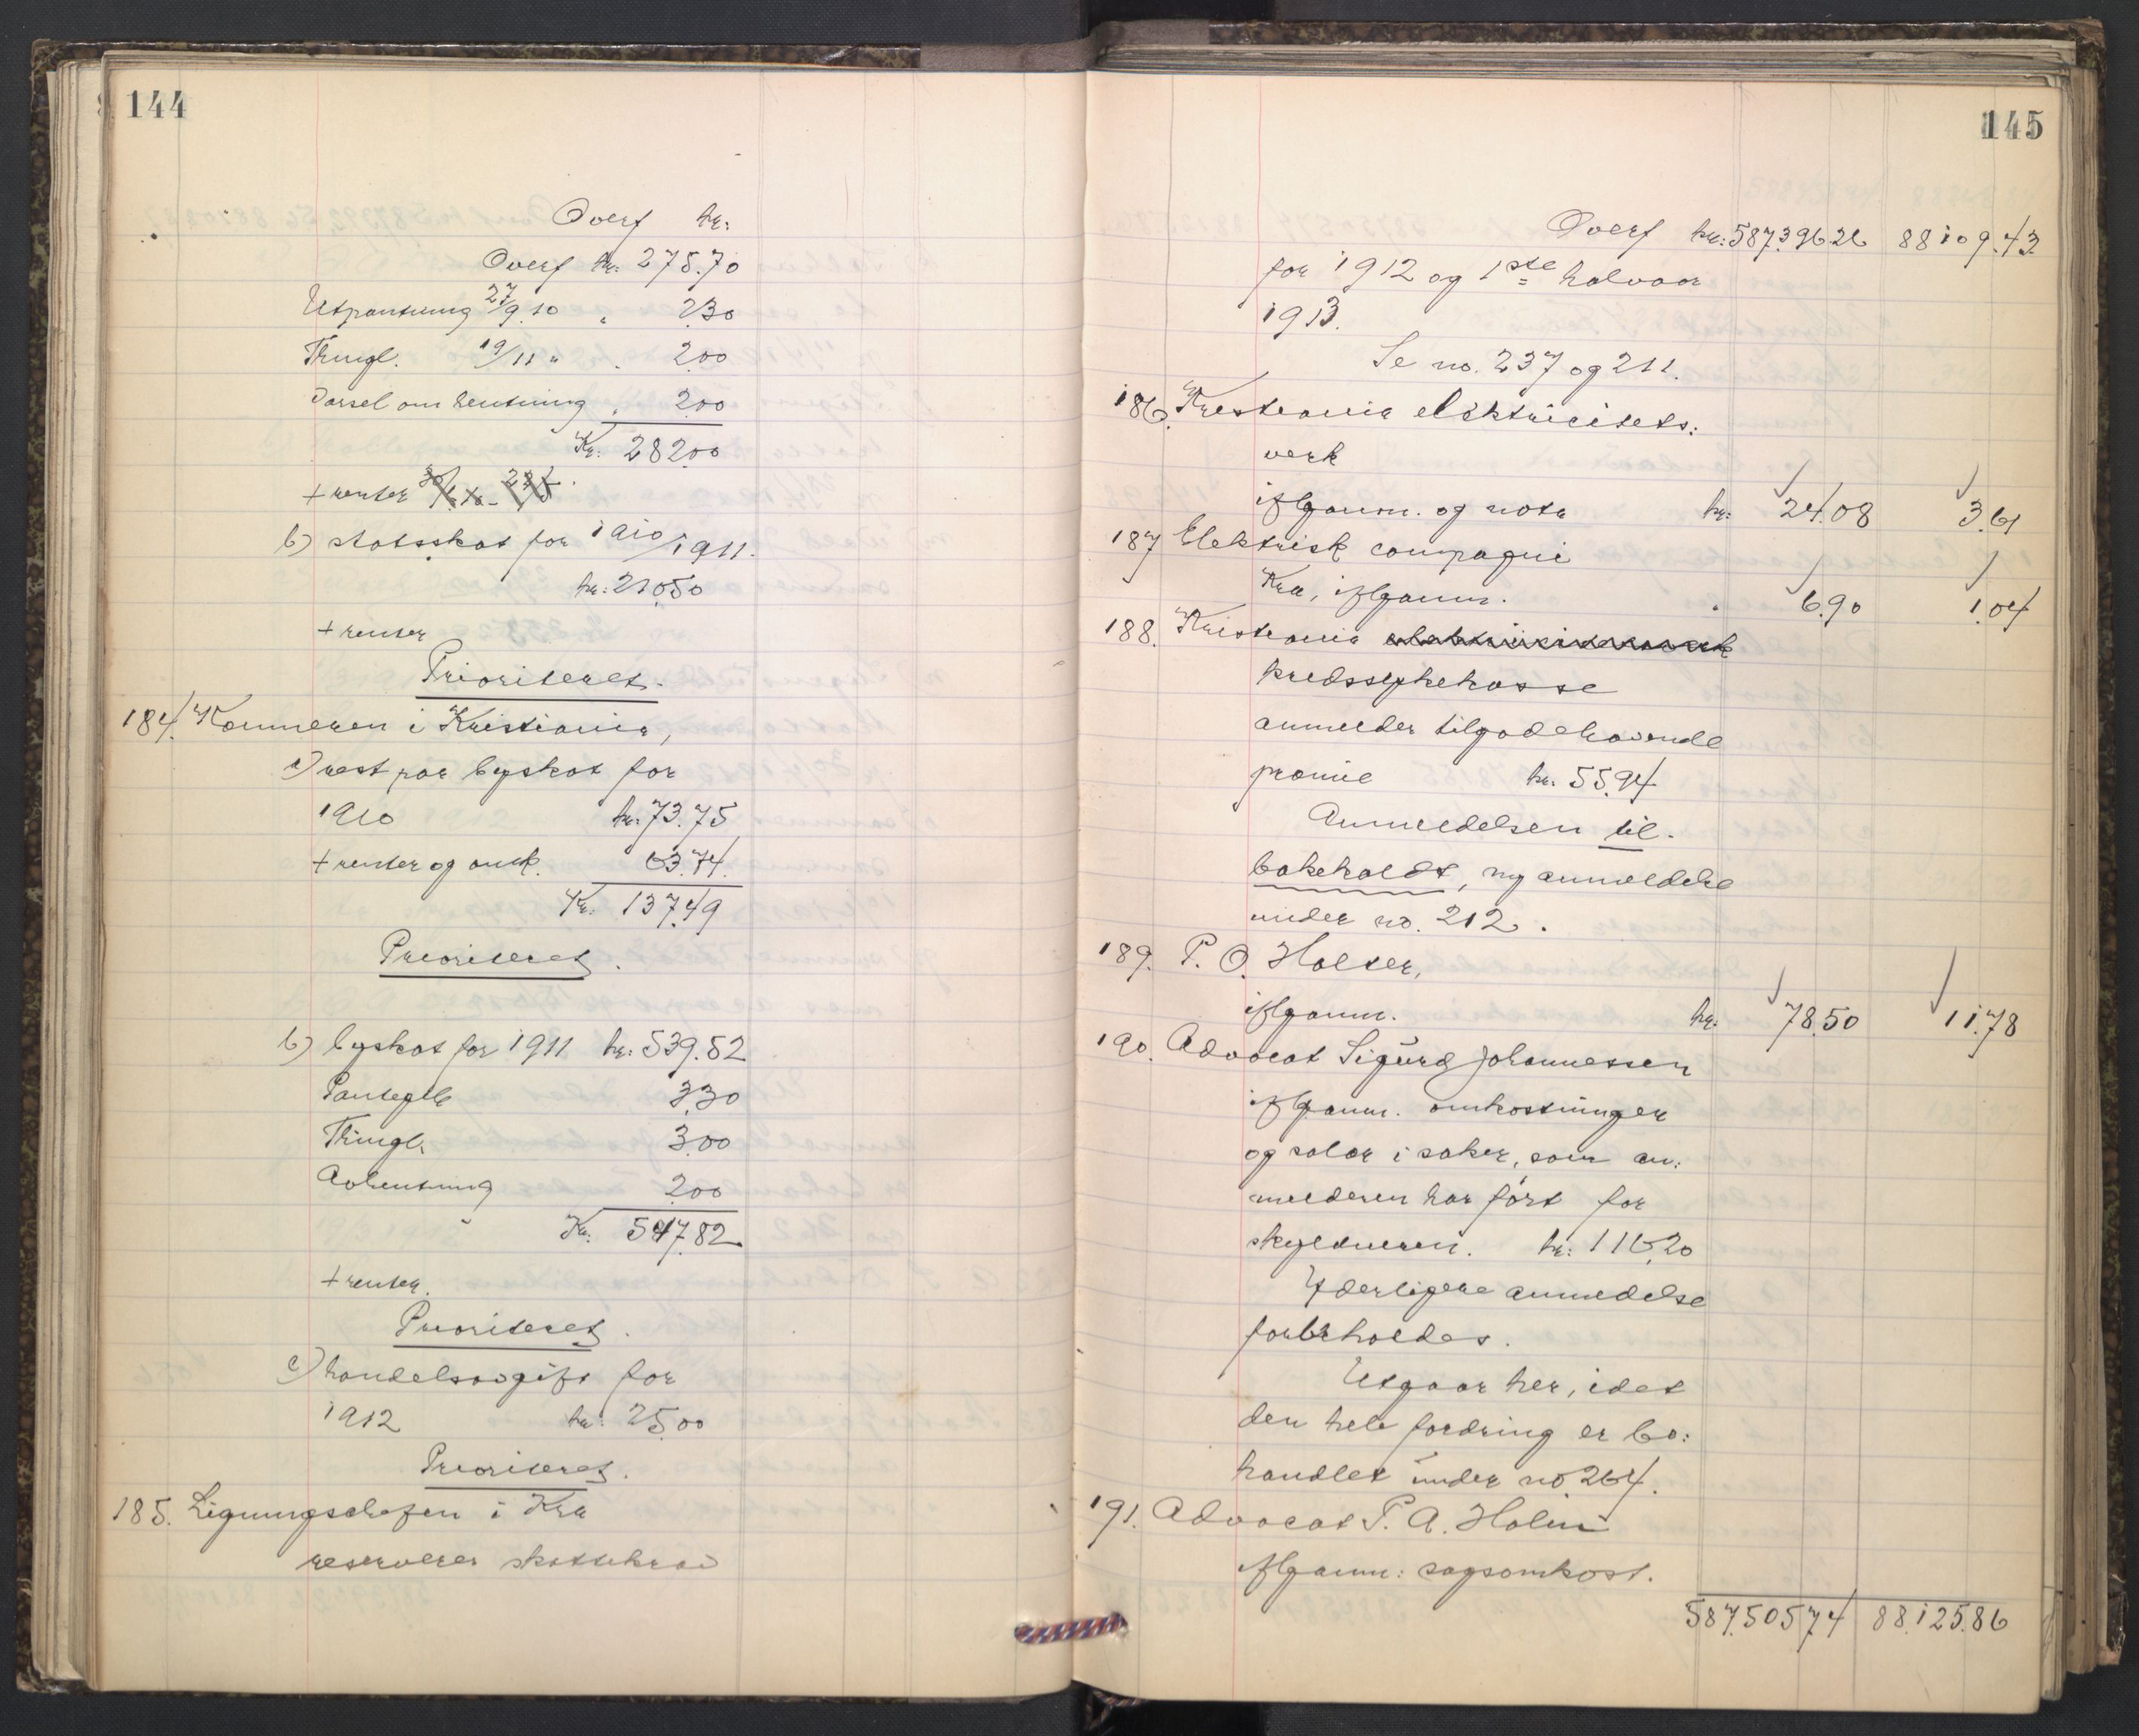 144
Overf kr:
Overf kr: 275.70
Utpantning 27/9.10 " 2.30
Thingl. 19/11 " . 2.00
Varsel om hentning . 2.00
Kr: 282.00
+ renter
b) statsskat for 1910/1911.
kr: 210.50
+ renter
Prioriteret.
184. Kæmneren i Kristiania,
a) rest paa byskat for
1910 kr: 73.75
+ renter og omk. 63.74.
Kr: 137.49
Prioriteret.
b) byskat for 1911 kr: 539.52
Pantegeb 3.30
Thingl. 3.00
Avhentning 2.00
Kr: 547.82
+ renter.
Prioriteret.
c) handelsavgift for
1912 kr: 25.00
Prioriteret.
185. Ligningschefen i Kra
reserverer skattekrav
145
Overf kr: 587.396 26 88 109.43
for 1912 og 1ste halvaar
1913.
Se no. 237 og 211.
186. Kristiania elektricitets:
verk
iflganm. og nota kr: 24.08 3.61
187 Elektrisk compagni
Kra, iflganm. " 6.90 1.04
188. Kristiania elektricitetsverk
kredssykekasse
anmelder tilgodehavende
præmie kr. 55.94
Anmeldelsen til-
bakekaldt, ny anmeldelse
under no. 212.
189. P. O. Holter,
iflganm. kr: 78.50 11.78
190. Advocat Sigurd Johannessen
iflganm. omkostninger
og salær i saker, som an:
melderen har ført for
skyldneren. kr: 116.20
Yderligere anmeldelse
forbeholdes.
Utgaar her, idet
den hele fordring er be:
handlet under no. 264.
191. Advocat P. A. Holm
iflganm: sagsomkost.
587.505 74 88.125.86